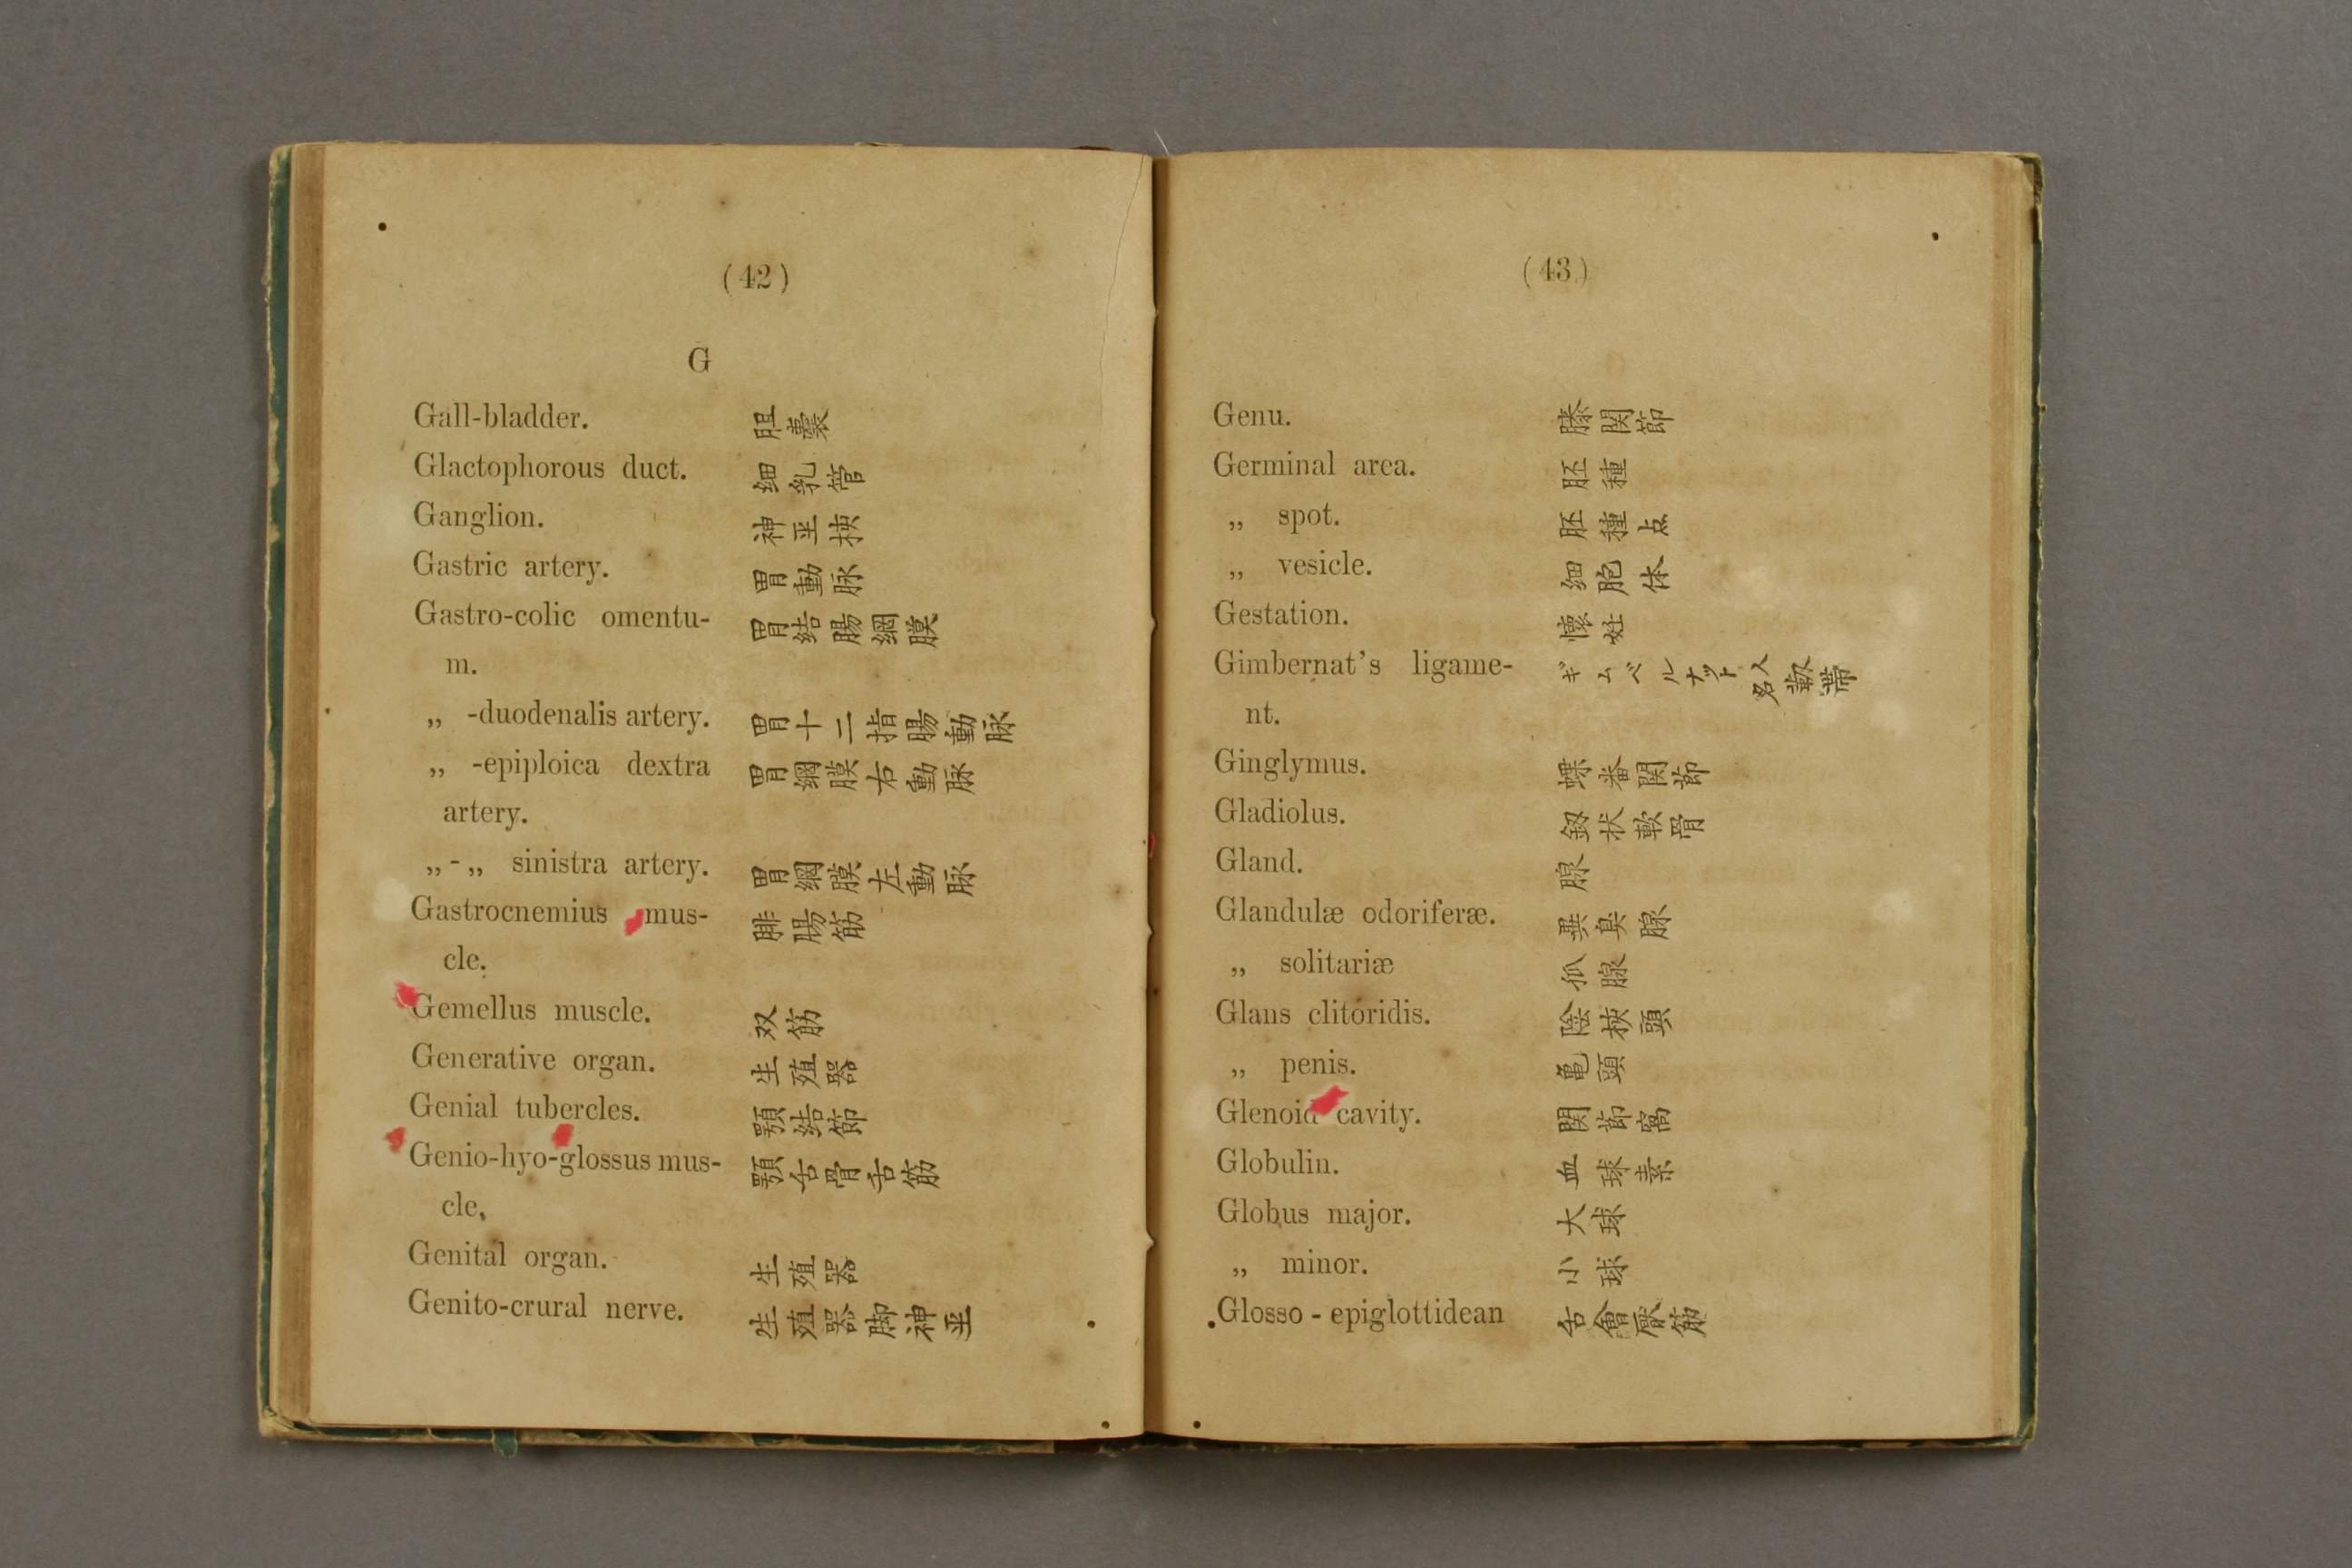 (42)
G
Gall-bladder. 胆嚢
Glactophorous duct. 细乳管
Ganglion. 神
Gastric artery. 胃動脉
Gastro-colic omentu- 胃结腸綱膜
m.
„ -duodenalis artery. 胃十二指腸動脉
„ -epiploica dextra 胃綱膜右動脉
artery.
„-„ sinistra artery. 胃綱膜左動脉
Gastrocnemius mus- 腓腸筋
cle.
Gemellus muscle. 双筋
Generative organ. 生殖器
Genial tubercles. 顎结節
Genio-hyo-glossus mus- 顎舌骨舌筋
cle.
Genital organ. 生殖器
Genito-crural nerve. 生殖器脚神
(43)
Genu. 膝関節
Germinal area. 胚種
„ spot. 胚種点
„ vesicle. 细胞体
Gestation. 懐妊
Gimbernat's ligame- ギムベルナット人名靱帯
nt.
Ginglymus. 蝶番関節
Gladiolus. 釼状軟骨
Gland. 腺
Glandulæ odoriferæ. 異臭腺
„ solitariæ 孤腺
Glans clitoridis. 陰梜頭
„ penis. 亀頭
Glenoid cavity. 関節窩
Globulin. 血球素
Globus major. 大球
„ minor. 小球
Glosso - epiglottidean 舌會厭筋